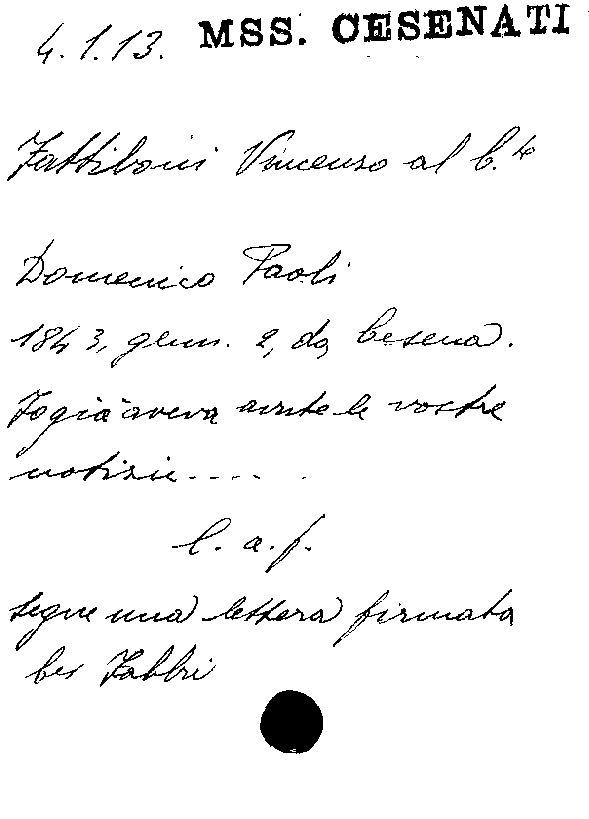 4.1.13. MSS. CESENATI
Fattiboni Vincenzo al C.te
Domenico Paoli
1843, genn. 2, da Cesena.
Io già aveva avute le vostre
notizie.....
l. a. f.
segue una lettera firmata
Fabbri